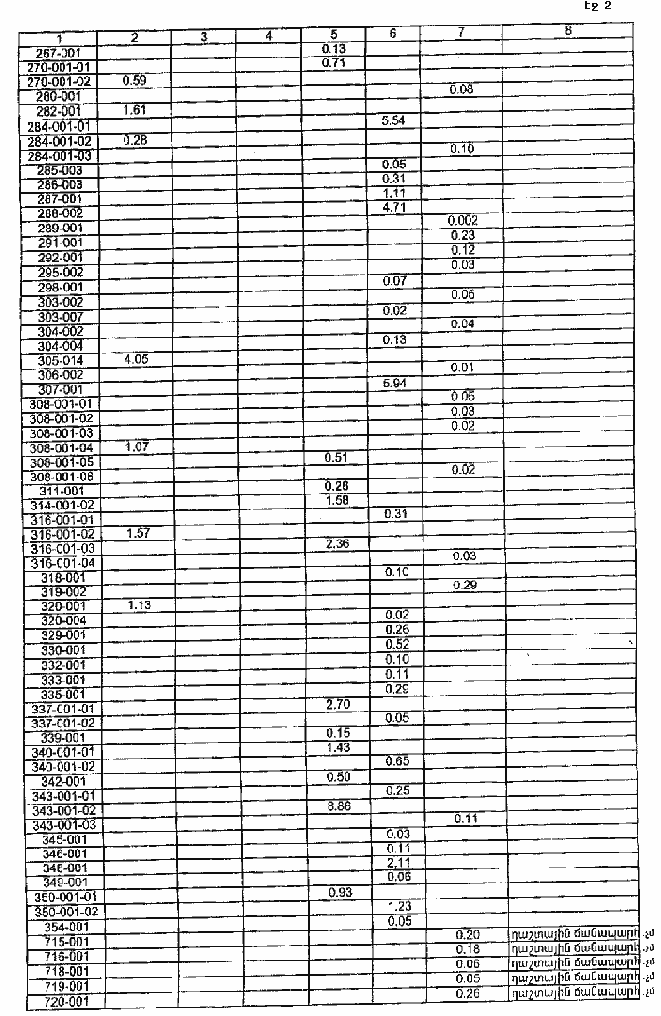 Էջ 2
1 2 3 4 5 6 7 8
267-001 0.13
270-001-01 0.71
270-001-02 0.59
280-001 0.08
282-001 1.61
284-001-01 5.54
284-001-02 0.28
284-001-03 0.10
285-003 0.05
286-003 0.31
287-001 1.11
288-002 4.71
289-001 0.002
291-001 0.23
292-001 0.12
295-002 0.03
298-001 0.07
303-002 0.05
303-007 0.02
304-002 0.04
304-004 0.13
305-014 4.05
306-002 0.01
307-001 5.94
308-001-01 0.05
308-001-02 0.03
308-001-03 0.02
308-001-04 1.07
308-001-05 0.51
308-001-06 0.02
311-001 0.28
314-001-02 1.58
316-001-01 0.31
316-001-02 1.57
316-001-03 2.36
316-001-04 0.03
318-001 0.10
319-002 0.29
320-001 1.13
320-004 0.02
329-001 0.26
330-001 0.52
332-001 0.10
333-001 0.11
335-001 0.29
337-001-01 2.70
337-001-02 0.05
339-001 0.15
340-001-01 1.43
340-001-02 0.65
342-001 0.50
343-001-01 0.25
343-001-02 3.86
343-001-03 0.11
345-001 0.03
346-001 0.11
348-001 2.11
349-001 0.06
350-001-01 0.93
350-001-02 1.23
354-001 0.05
715-001 0.20 դաշտային ճանապարհ
716-001 0.18 դաշտային ճանապարհ
718-001 0.06 դաշտային ճանապարհ
719-001 0.05 դաշտային ճանապարհ
720-001 0.26 դաշտային ճանապարհ